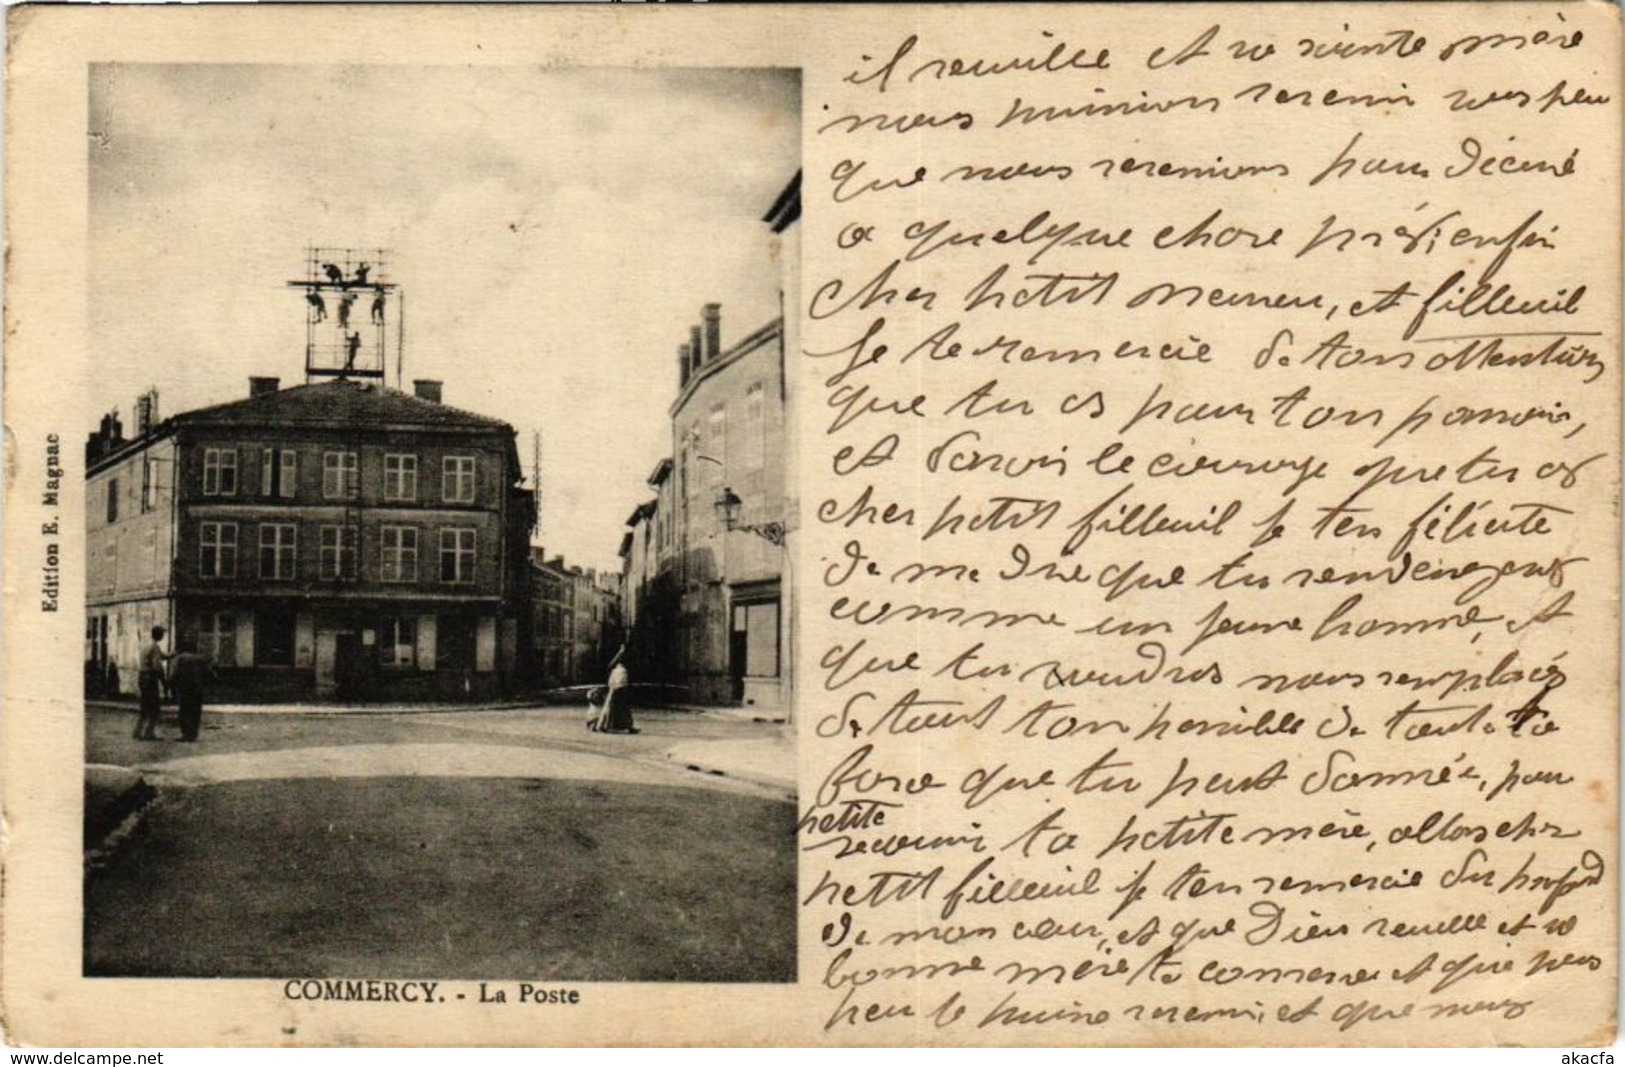 il veuille et sa sainte mère
nous puinions revenir sous peu
que nous revenions pour
a quelque chose près; enfin
cher petit neuveu, et filleuil
Je te remercie de ton attention
que tu as pour ton parrain,
et davoir le courage que tu as
cher petit filleuil je ten félicite
de me dire que tu
comme un jeune homme, et
que tu voudras nous remplacés
de tout ton possible de toute ta
force que tu peut donnée, pour
petite
secourir ta petite mère, allons cher
petit filleuil je ten remercie du profond
de mon cœur, et que Dieu veuille et sa
bonne mère te conserve et que sous
peu le puine revenir, et que nous
Edition E. Magnac
COMMERCY. - La Poste
www.delcampe.net
akacfa